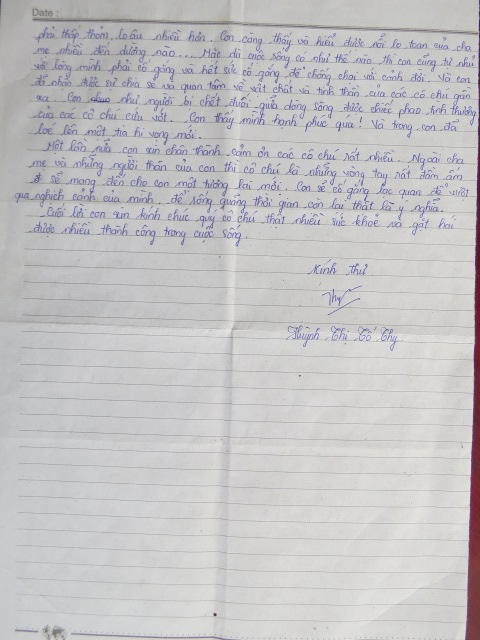 Date :
phải thấp thỏm, lo âu nhiều hơn. Con càng thấy và hiểu được nỗi lo toan của cha
mẹ nhiều đến dường nào... Mặc dù cuộc sống có như thế nào thì con cũng tự nhủ
với lòng mình phải cố gắng và hết sức cố gắng để chống chọi với cảnh đời. Và con
đã nhận được sự chia sẻ và quan tâm về vật chất và tinh thần của các cô chú gần
xa. Con như người bị chết đuối giữa dòng sông được chiếc phao tình thương
của các cô chú cứu vớt. Con thấy mình hạnh phúc quá! Và trong con đã
loé lên một tia hi vọng mới.
Một lần nữa con xin chân thành cảm ơn các cô chú rất nhiều. Ngoài cha
mẹ và những người thân của con thì cô chú là những vòng tay rất đầm ấm
sẽ mang đến cho con một tương lai mới. Con sẽ cố gắng lạc quan để vượt
qua nghịch cảnh của mình để sống quãng thời gian còn lại thật là ý nghĩa.
Cuối lời con xin kính chúc quý cô chú thật nhiều sức khoẻ và gặt hái
được nhiều thành công trong cuộc sống.
Kính thư
Thy
Huỳnh Thị Tố Thy